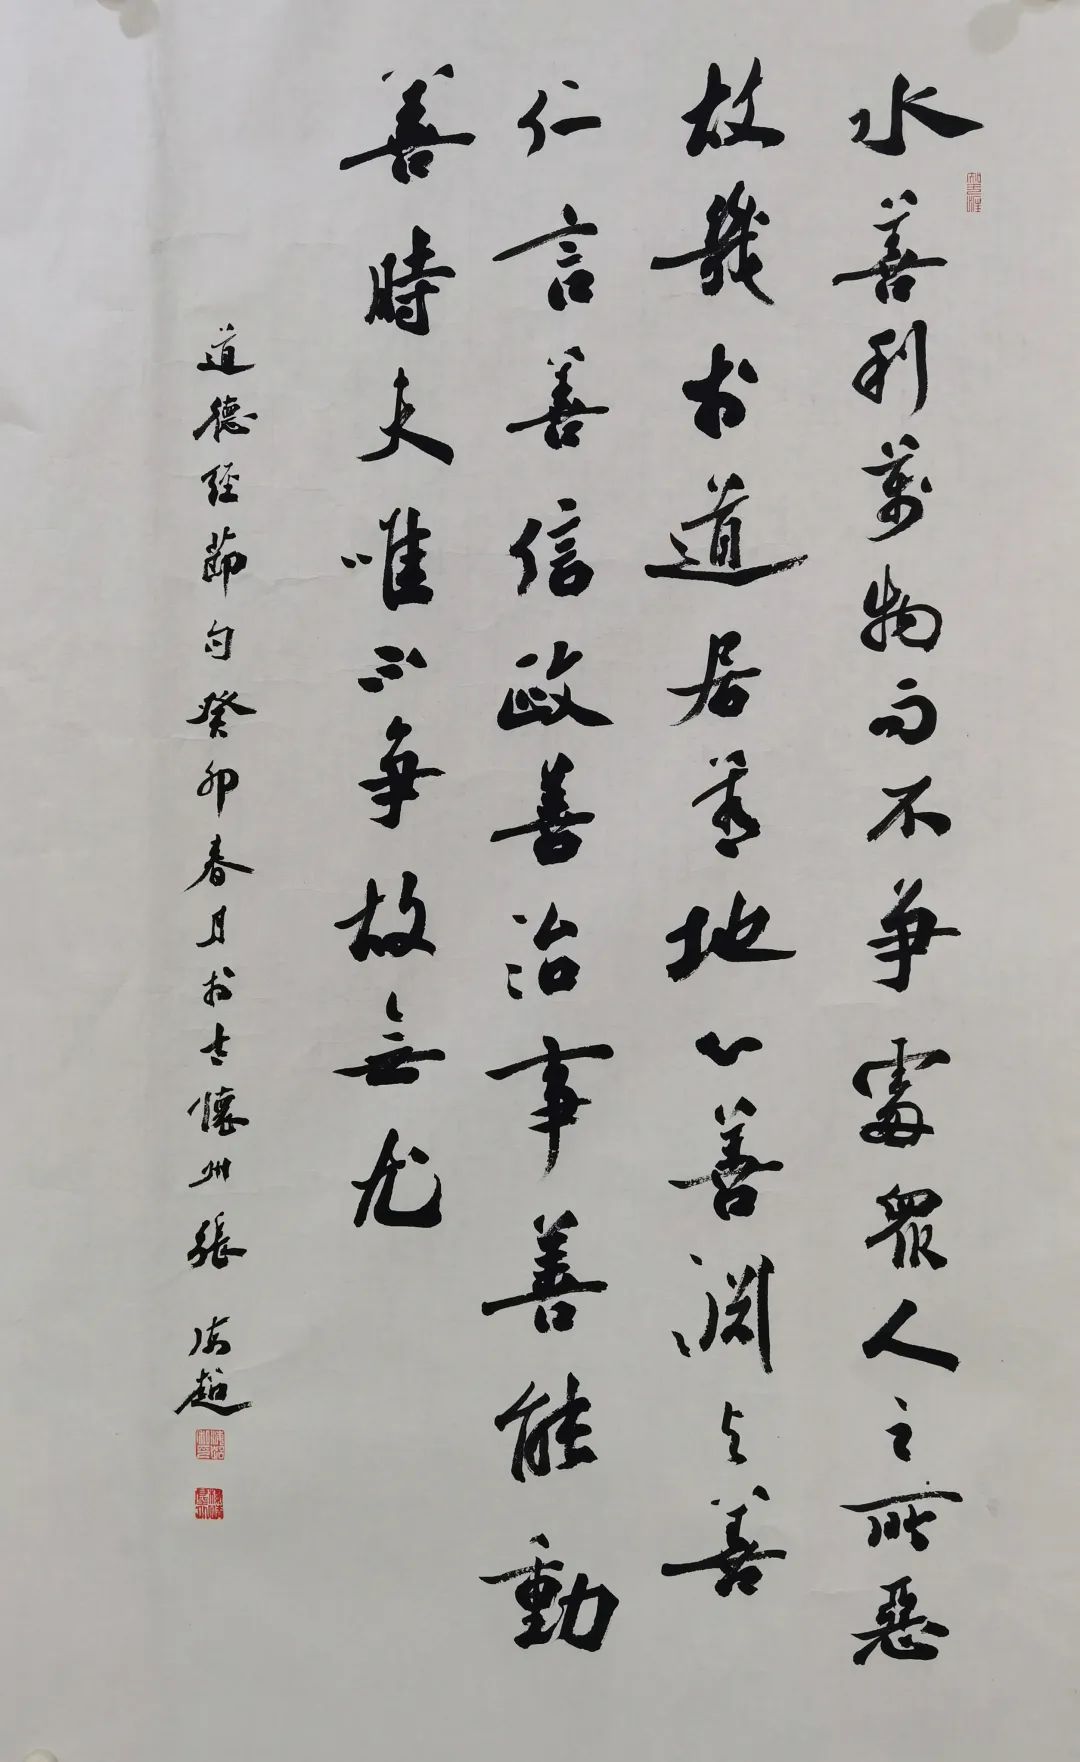 水善利萬物而不爭處眾人之所惡
故幾於道居善地心善淵与善
仁言善信政善治事善能動
善時夫唯不爭故無尤
道德經節句癸卯春月於古懷州張海超